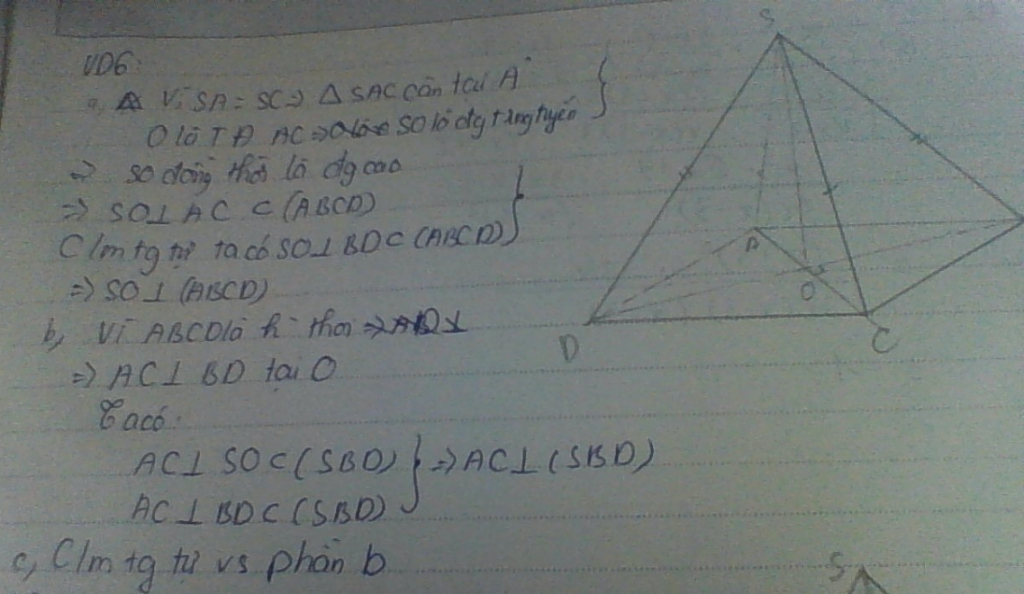 VD6:
a, Vì SA = SC => Δ SAC cân tại A
O là TĐ AC => SO là đg trung tuyến
=> SO đồng thời là đg cao
=> SO ⊥ AC ⊂ (ABCD)
C/m tg tự ta có SO ⊥ BD ⊂ (ABCD)
=> SO ⊥ (ABCD)
b, Vì ABCD là h thoi =>
=> AC ⊥ BD tại O
Ta có:
AC ⊥ SO ⊂ (SBD) } => AC ⊥ (SBD)
AC ⊥ BD ⊂ (SBD)
c, C/m tg tự vs phần b
S
A
O
D
C
S